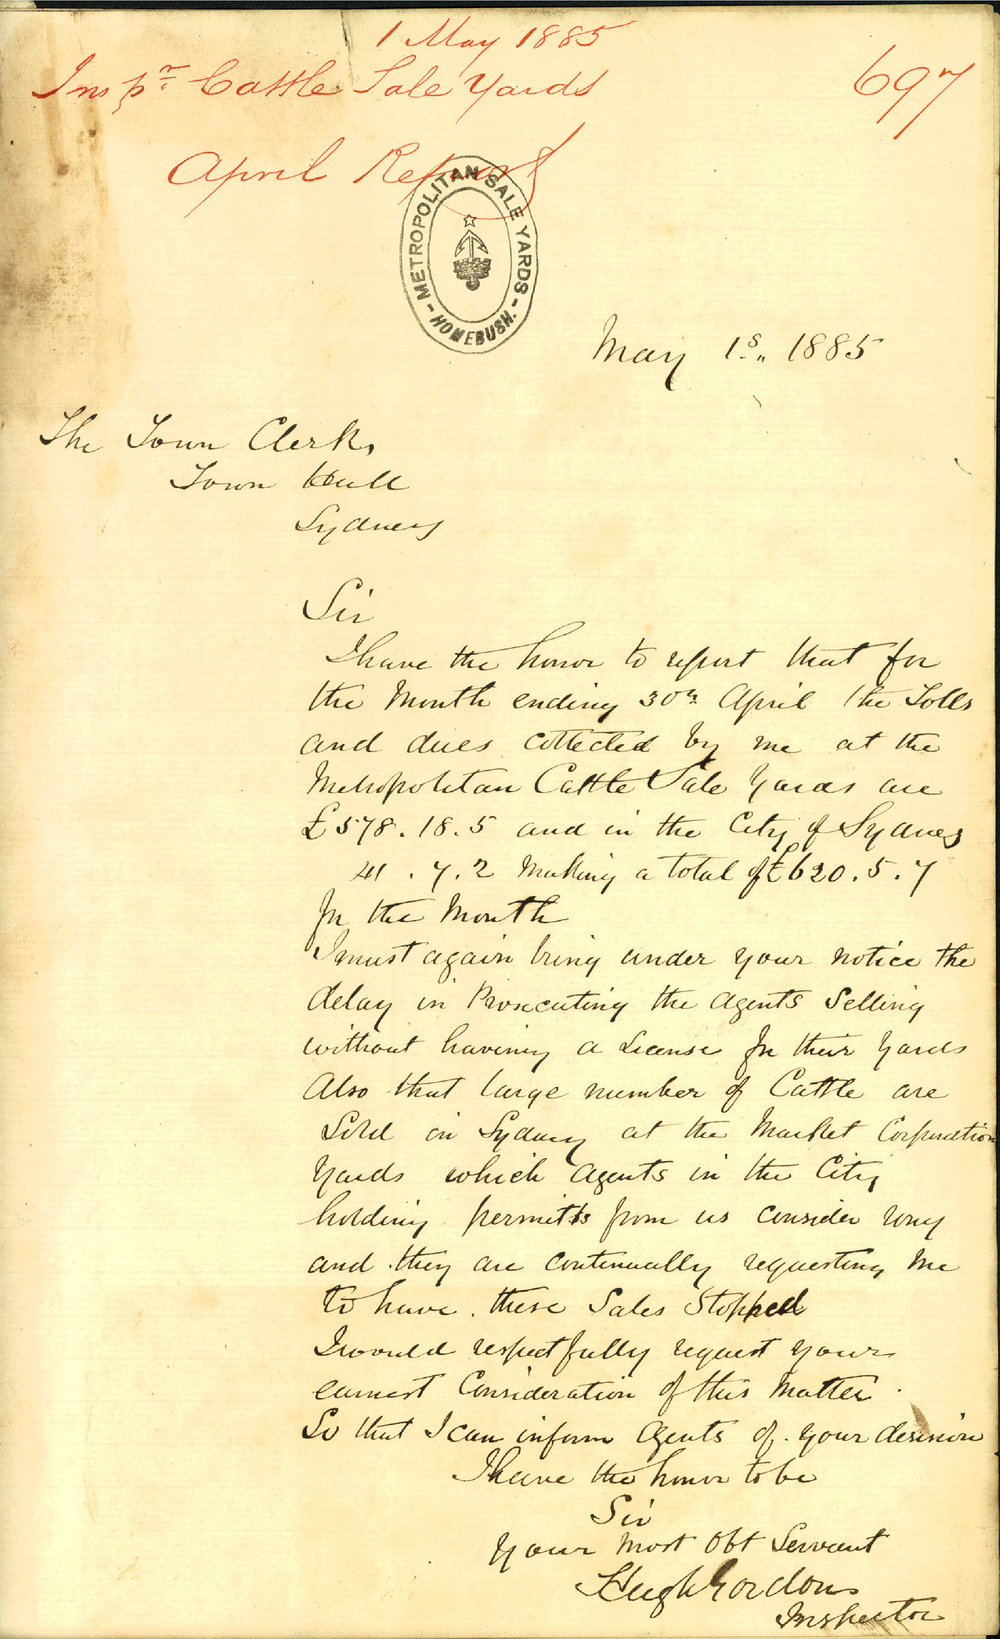 1 May 1885
Inspr. Cattle Sale Yards
697
April Report
METROPOLITAN SALE YARDS
HOMEBUSH.
May 1s., 1885
The Town Clerk,
Town Hall
Sydney
Sir
I have the honor to report that for
the Month ending 30th April the Tolls
and dues collected by me at the
Metropolitan Cattle Sale Yards are
£578.18.5 and in the City of Sydney
41.7.2 Making a total of £620.5.7
In the Month
I must again bring under your notice the
delay in Prosecuting the Agents Selling
without having a License In their Yards
Also that large number of Cattle are
Sold in Sydney at the Market Corporation
Yards which Agents in the City
holding permits from us consider rong
and they are continually requesting me
to have these Sales Stopped
I would respectfully request your
earnest Consideration of this Matter.
So that I can inform Agents of your desision
I have the honor to be
Sir
Your Most Obt Servant
Hugh Gordon
Inspector